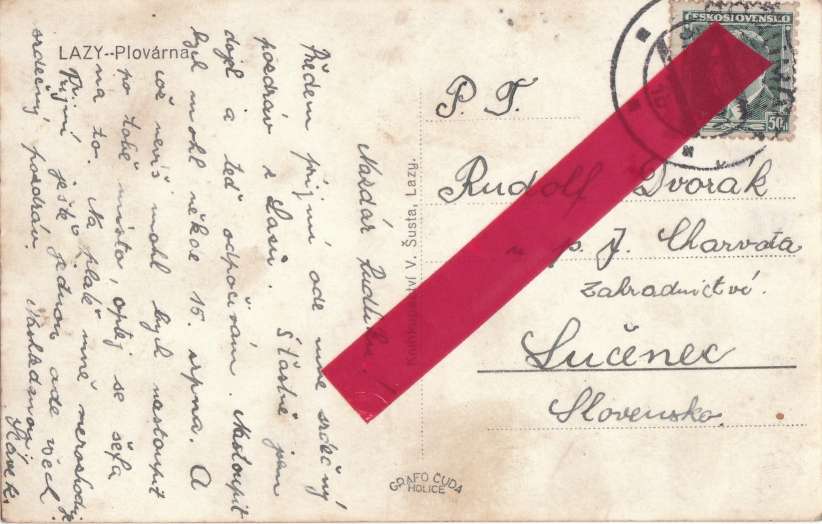 LAZY--Plovárna
Nazdar Rudlíku!
Předem přijmi ode mne srdečný
pozdrav z Lasů. Šťastně jsem
dojel a teď odpočívám. Nastoupit
bych mohl někoe 15. srpna. A
což nevíš mohl bych nastoupit
po tobě místa, optej se šéfa
na to. Na plat mně nerozhoduje.
Přijmi ještě jednou ode všech
srdečný pozdrav. Nashledanou
Slávek.
Knihkupectví V. Šusta, Lazy.
GRAFO ČUDA
HOLICE
ČESKOSLOVENSKO
50h
P. T.
Rudolf Dvorak
u p. J. Charvata
zahradnictví.
Lučenec
Slovensko.